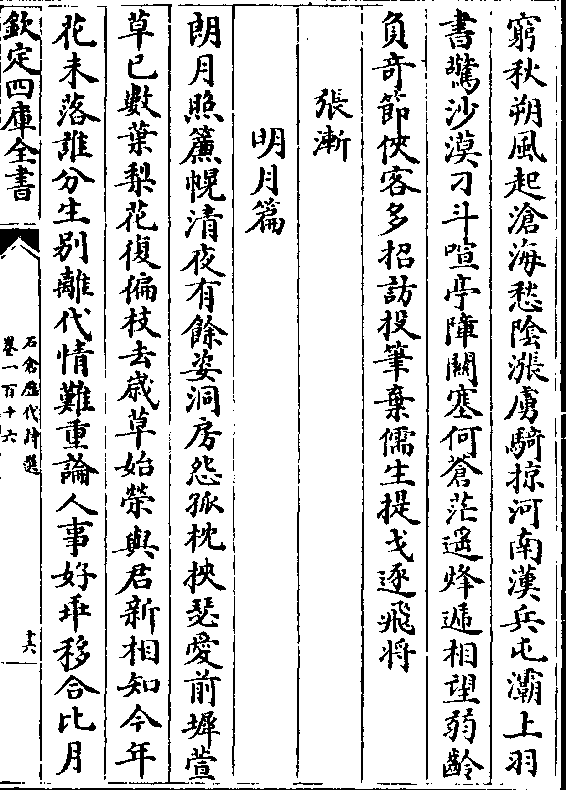 窮秋朔風起滄海愁陰漲虜騎掠河南漢兵屯灞上羽
書驚沙漠刁斗喧亭障關塞何蒼茫遥烽遞相望弱齡
負奇節俠客多招訪投筆棄儒生提戈逐飛将
張漸
明月篇
朗月照簾幌清夜有餘姿洞房怨孤枕挾瑟愛前墀萱
草已數葉梨花復偏枝去歳草始榮與君新相知今年
花未落誰分生别離代情難重論人事好乖移合比月
欽定四庫全書
石倉歴代詩選
卷一百十六
十六